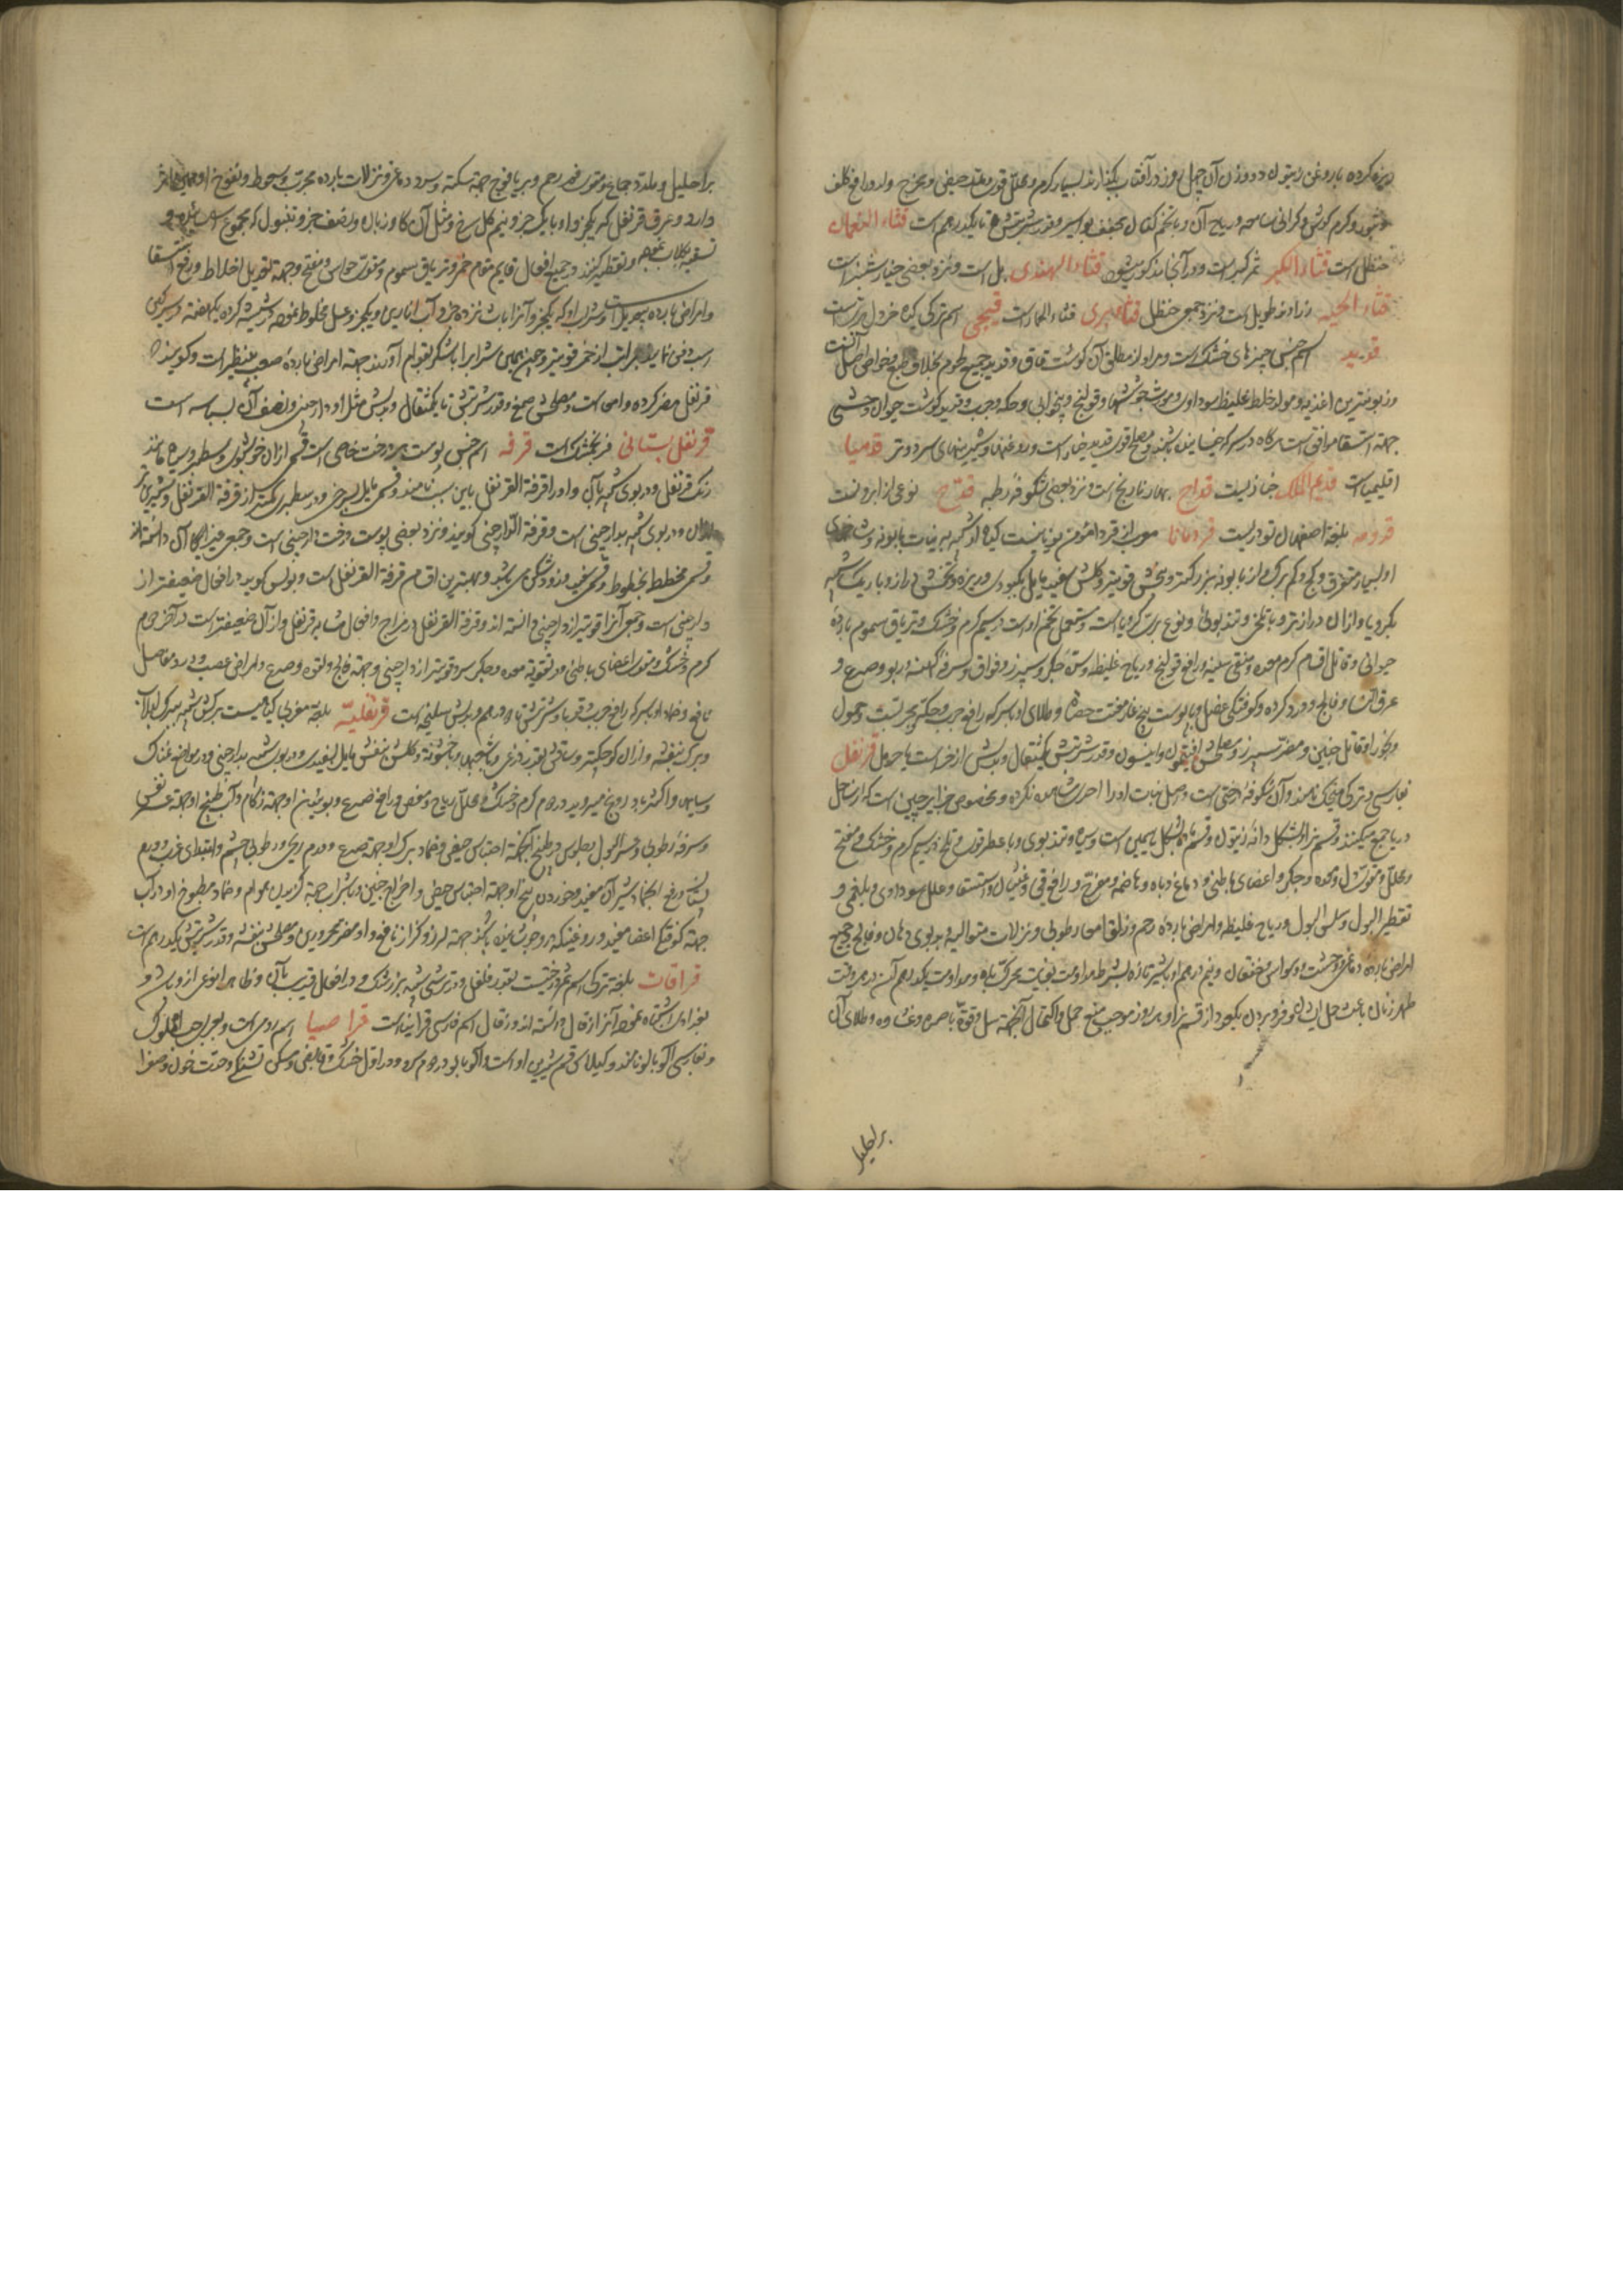 ریزه کرده با روغن زیتون در وزن آن چهل روز در آفتاب بگذارند بسیار گرم و محلل قوی و مدر حیض و مخرج ولد و رافع کلف
و بثور و کرم گوش و گرانی سامعه و ریاح آن و با تخم کتان مجفف بواسیر و قدر شربتش تا یکدرهم است قثاء النعمان
حنظل است قثاء الکبر ثمر کبر است و در آنجا مذکور میشود قثاء الهندی بل است و نزد بعضی خیارشنبر است
قثاء الحیه زراوند طویل است و نزد جمعی حنظل قثاء بری قثاء الحمار است قیجی اسم ترکی کیده خردل بریست
قدید اسم جنس چیزهای خشک است و مراد از مطلق آن گوشت قاق و قدید جمیع لحوم بخلاف طبع و خواص اصل آنست
و زبونترین اغذیه و مولد خلط غلیظ سوداوی و مورث جوششها و قولنج و بیخوابی و حکه و جرب و قدید گوشت حیوان وحشی
جهة استسقا موافق است هرگاه در سرکه خیسانیده باشند و مصلح قدید خیار است و روغنها و شیرینیهای سرد و تر قدمیا
اقلیمیا است قدیم الملک خانزلیست قداح بهار نارنج است و نزد بعضی شکوفه رطبه قدح نوعی از ابرونست
قدومه بلغة اصفهان تودریست قردمانا معرب از قردامؤمن یونانیست گیاه او شبیه به نبات بابونه و شاخهای
او بسیار متفرق و کج و کم برگ و از بابونه بزرگتر و بیخش قویتر و گلش سفید مایل بکبودی و ریزه و تخمش دراز و باریک شبیه
بکرویا و از آن درازتر و با تلخی و تندبوئی و نوع بری کرویا است و مستعمل تخم اوست در سیم گرم و خشک و تریاق سموم بارده
حیوانی و قاتل اقسام کرم معده و منقی سینه و رافع قولنج و ریاح غلیظه و سده جگر و سپرز و فواق و سرفه کهنه و ربو و صرع و
عرق النسا و فالج و درد گرده و کوفتگی عضل و با پوست بیخ غار مفتت حصاة و طلای او با سرکه رافع جرب و حکه و بحریتست و حمول
و بخور او قاتل جنین و مضر سپرز و مصلحش افتیمون و انیسون و قدر شربتش یکمثقال و بدلش از خراست یا حرمل قرنفل
بفارسی و ترکی میخک نامند و آن شکوفه درختی است و اصل نبات او را احدی مشاهده نکرده و مخصوص جزایر چین است که از ساحل
دریا جمع میکنند و قسم نر او بشکل دانه زیتون و قسم ماده بشکل یاسمین است و سیاه و تندبوی و با عطر قوی و تلخ در سیم گرم و خشک و مفتح
و محلل و مقوی دل و معده و جگر و اعضای باطنی و دماغ و باه و هاضمه و مفرح و رافع قی و غثیان و استسقا و علل سوداوی و بلغمی و
تقطیر البول و سلس البول و ریاح غلیظه و امراض بارده رحم و زلق امعا رطوبی و نزلات متوالیه و بدبوی دهان و فالج و جمیع
امراض بارده دماغی و وحشت و وسواس و خفقان و نیم درهم او با شیر تازه بشرط مداومت بغایت محرک باه و مداومت یکدرهم آن در هر وقت
طهر زنان باعث حمل ایشان و فرو بردن یکعدد از قسم نر او هر روز موجب منع حمل و اکتحال آن جهة سبل و قوت باصره و غشاوه و طلای آن
بر احلیل
بر احلیل و ملذذ جماع و مقوی فم رحم و بر یافوخ جهة سکته و سردی دماغی و نزلات بارده مجرب و سعوط و نفوخ او همین اثر
دارد و عرق قرنفل که یکجزو او با یکجزو نیم گل سرخ و مثل آن گاوزبان و نصف جزو تنبول که مجموع
تسقیه بگلاب نموده و تقطیر کنند در جمیع افعال قایم مقام خمر و تریاق سموم و مقوی حواس و مفتح و جهة تعدیل اخلاط و رفع استسقا
و امراض بارده بیعدیل است و شراب او که یکجزو آنرا با شانزده جزو آب انارین و یکجزو عسل مخلوط نموده در شیشه کرده یکهفته در سرگین
اسب دفن نمایند بمراتب از خمر قویتر و چون همین شراب را با شکر بقوام آورند جهة امراض بارده صعبه بینظیر است و گویند
قرنفل مضر گرده و امعا است و مصلحش صمغ و قدر شربتش تا یکمثقال و بدلش مثل او دارچینی و نصف آن بسباسه است
قرنفل بستانی فرنجمشک است قرفه اسم جنس پوست درخت خاصی است قسمی از آن خوشبوی و سطبر و سیاه مانند
رنگ قرنفل و در بوی شبیه بآن و او را قرفة القرنفل باین سبب نامند و قسمی مایل بسرخی و در سطبری کمتر از قرفة القرنفل و شیرینتر
از آن و در بوی شبیه بدارچینی است و قرفة الدارچینی گویند و نزد بعضی پوست درخت دارچینی است و جمعی غیر از آن دانسته اند
و قسمی مخطط بخطوط و قسمی سفید و زود شکن می باشد و بهترین اقسام قرفة القرنفل است و بولس گوید در افعال ضعیفتر از
دارچینی است و جمعی آنرا قویتر از دارچینی دانسته اند و قرفة القرنفل در مزاج و افعال مشابه قرنفل و از آن ضعیفتر است در آخر دوم
گرم و خشک و مقوی اعضای باطنی و در تقویة معده و جگر سرد قویتر از دارچینی و جهة فالج و لقوه و صرع و امراض عصب و درد مفاصل
نافع و ضماد او با سرکه رافع جرب و قوبا و شربتش تا دو درهم و بدلش سلیخه است قرنفلیه بلغة مغربی گیاهیست برگش شبیه ببرگ لبلاب
و برگ بنفشه و از آن کوچکتر و ساقش بقدر ذرعی و با شعبها و با خشونة و گلش بنفش مایل بسفیدی و در بوی شبیه بدارچینی و در مواضع نمناک
و سایه ها و اکثر بلاد روم میروید در دوم گرم و خشک و محلل ریاح و مغص و رافع صرع و بوئیدن او جهة زکام و آب طبیخ او جهة عسر نفس
و سرفه رطوبی و عسر البول و جلوس در طبیخ او جهة احتباس حیض و ضماد برگ او جهة صرع و ورم ریحی و رطوبی چشم و ابتدای غرب و ورم
پستان و رفع انجماد شیر آن مفید و خوردن بیخ او جهة احتباس حیض و اخراج جنین و با شراب جهة گزیدن هوام و ضماد مطبوخ او در آب
جهة کوفتگی اعضا مفید و روغنی که در او جوشانیده باشند جهة لرز و کزاز نافع و او مضر محرورین و مصلحش بنفشه و قدر شربتش یکدرهم است
قراقات بلغة ترکی اسم ثمر درختیست بقدر فلفل و در ترشی شبیه بزرشک و در افعال قریب بآن و ظاهرا نوعی از ویشنه و
بغدادی اشتباه نموده آنرا زقال دانسته اند و زقال اسم فارسی قرانیا است قراصیا اسم رومی است و بعربی حب الملوک
و بفارسی آلوبالو نامند و گیلاس قسم شیرین اوست و آلوبالو در دوم سرد و در اول خشک و قابض و مسکن تشنگی و حدت خون و صفرا